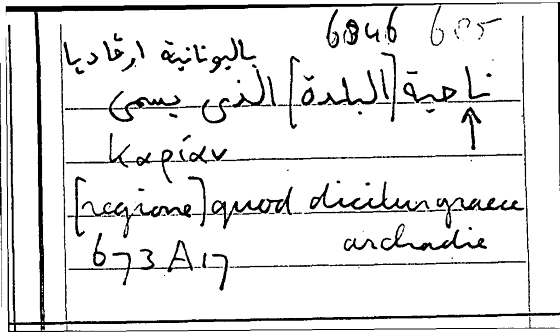 6846 685
باليونانية ارقاديا
ناحية [البلدة] الذى يسمى
καρίαν
[regione] quod dicitur graece
archadie
673 A 17